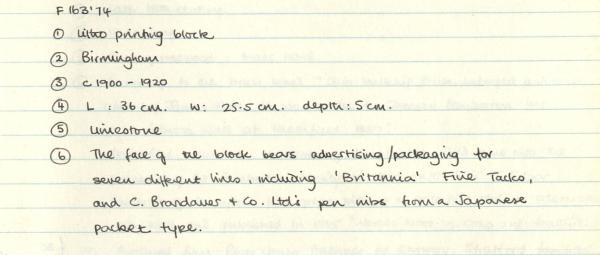 F 163'74
① Litho printing block
② Birmingham
③ c 1900 - 1920
④ L : 36 cm. W: 25.5 cm. depth: 5 cm.
⑤ Limestone
⑥ The face of the block bears advertising/packaging for
seven different lines, including 'Britannia' Fine Tacks,
and C. Brandauer & Co. Ltd's pen nibs from a Japanese
packet type.